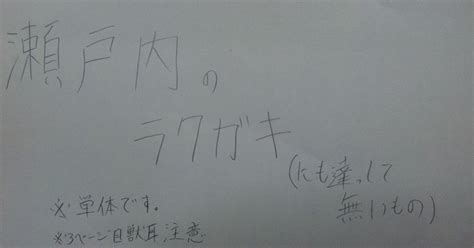 瀬戸内の
ラクガキ
(にも達して
無いもの)
※単体です。
※3ページ目獣耳注意